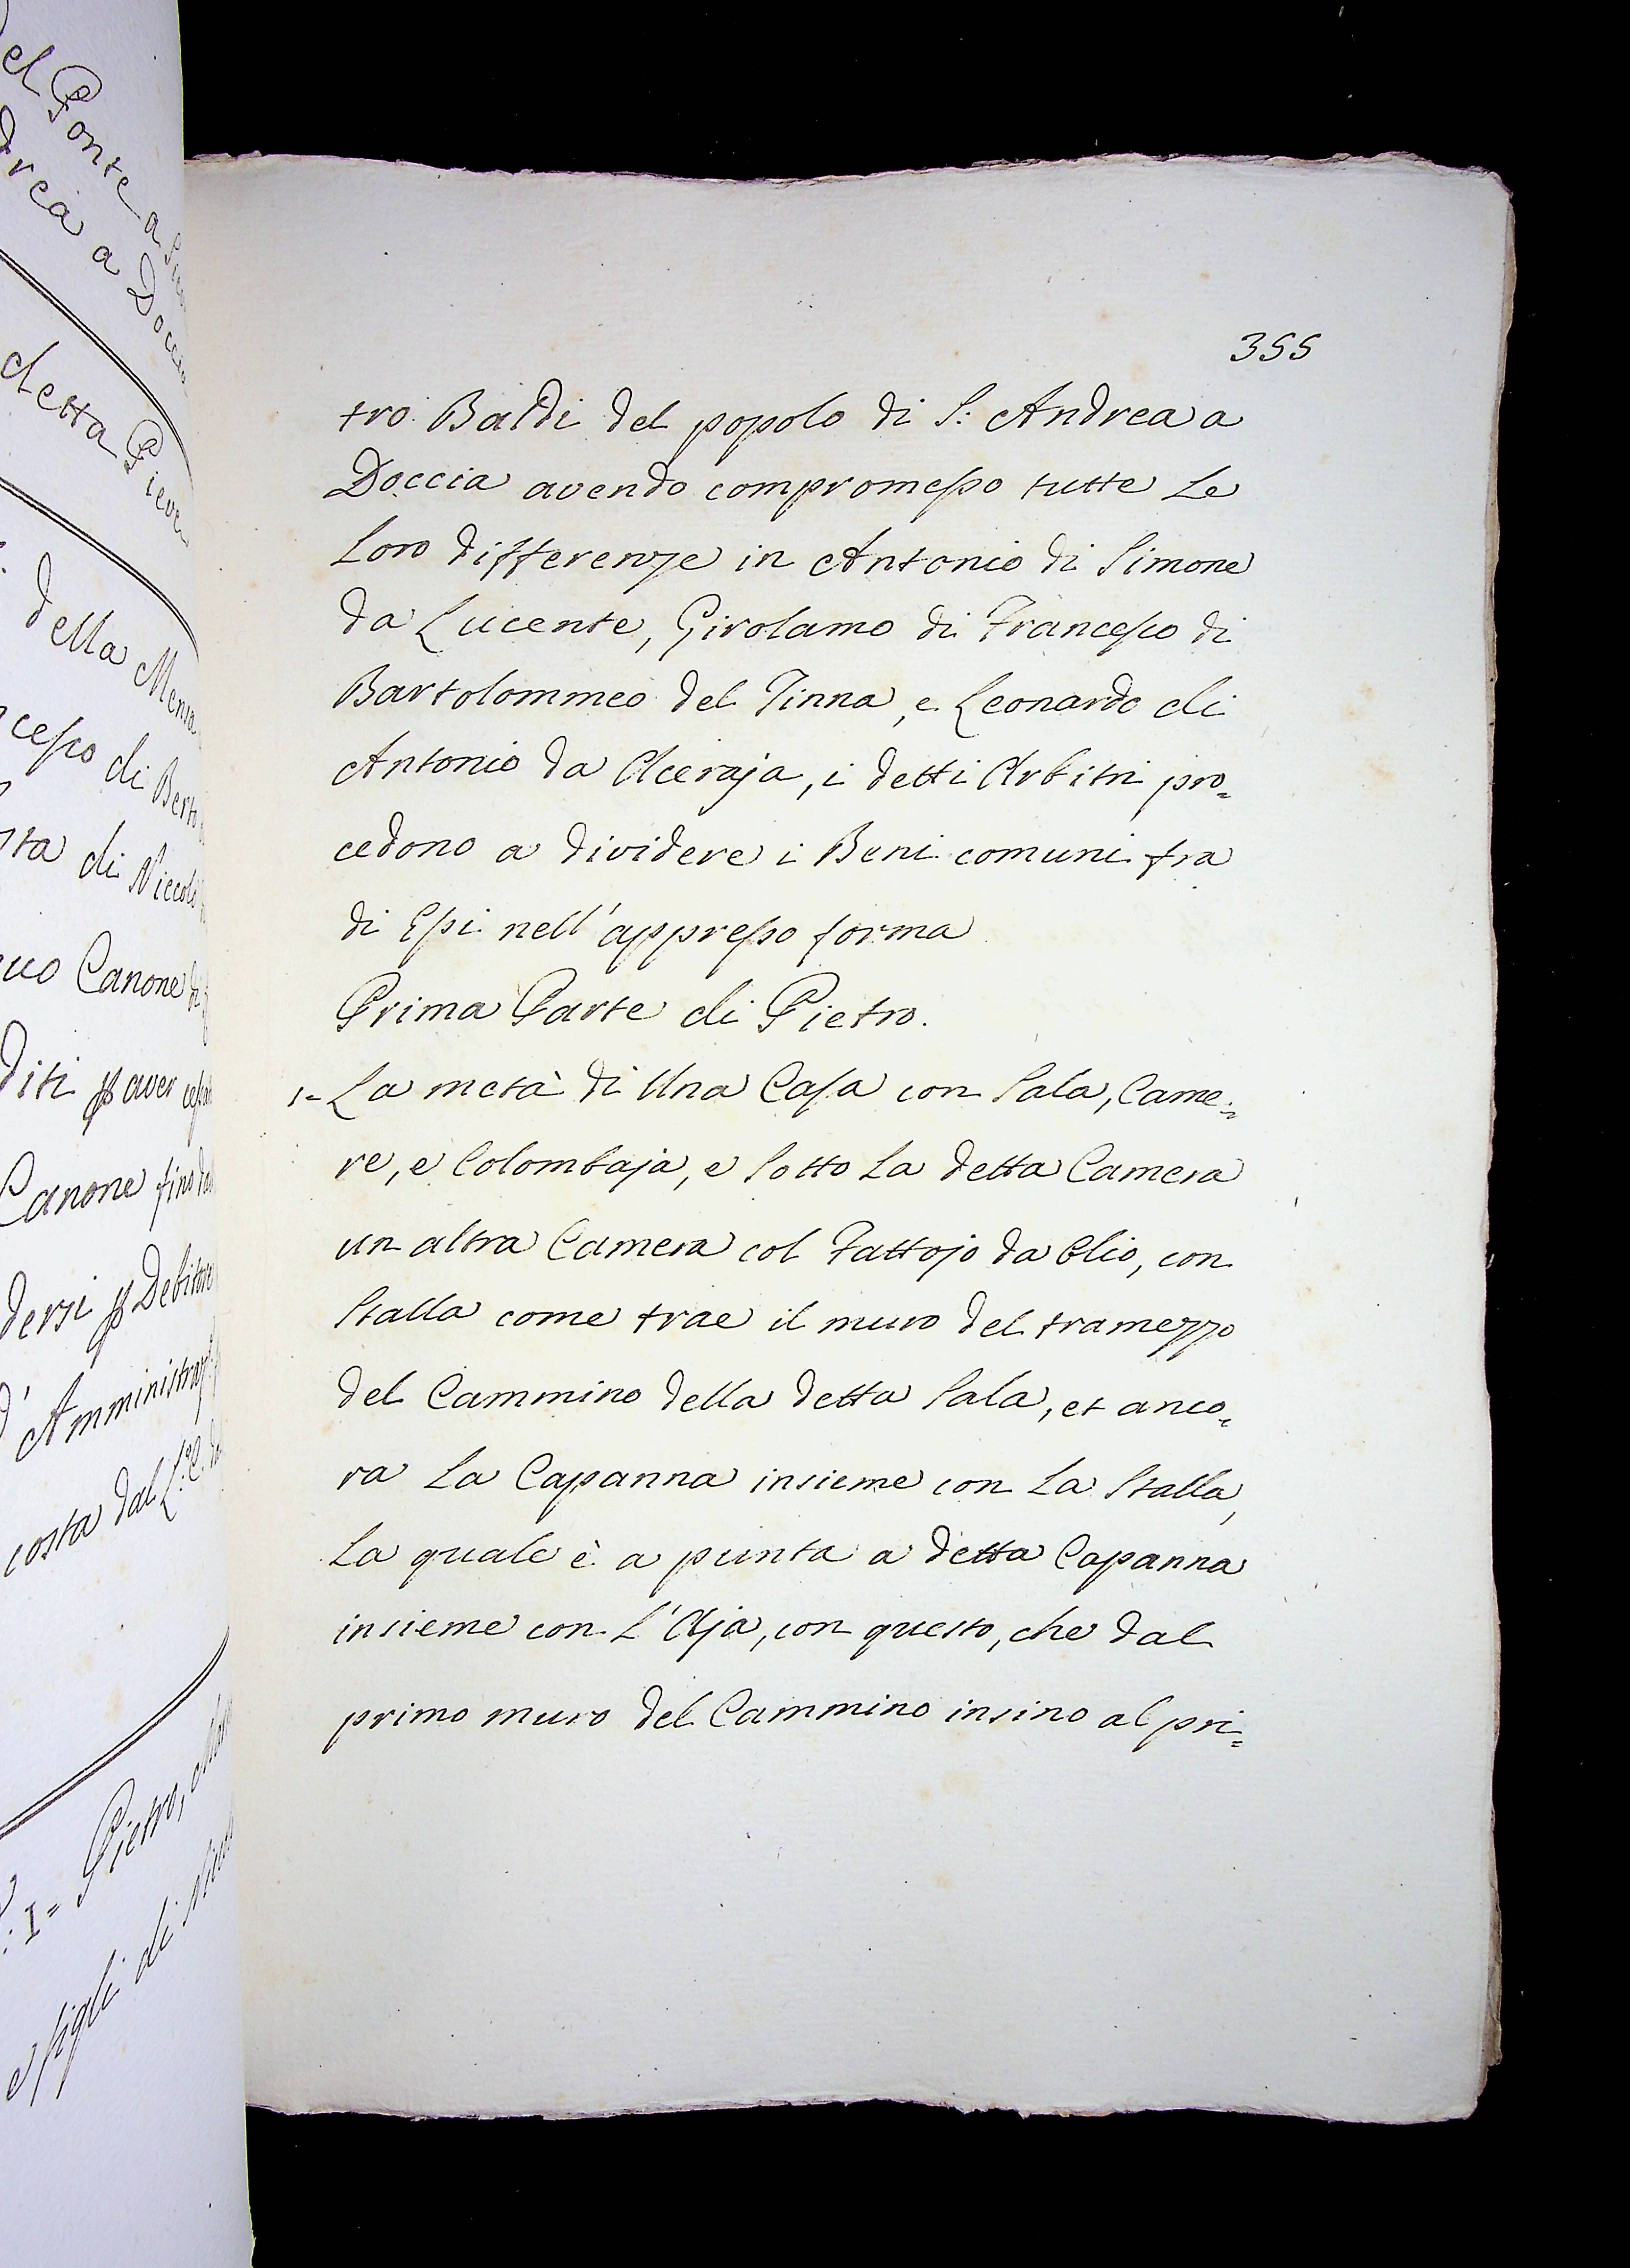 el Ponte a
drea a Doccia
detta Pieve
della Mensa
ncesco di Berto
sta di Niccolò
uo Canone di
diti p aver
Canone fino dal
dersi p Debitore
d'Amministraz.
costa dal
I= Pietro,
e figli di
355
tro Baldi del popolo di S: Andrea a
Doccia avendo compromesso tutte Le
Loro differenze in Antonio di Simone
da Lucente, Girolamo di Francesco di
Bartolommeo del Tinna, e Leonardo di
Antonio da Aceraja, i detti Arbitri pro=
cedono a dividere i Beni comuni fra
di Essi nell'appresso forma
Prima Parte di Pietro.
1= La metà di Una Casa con Sala, Came=
re, e Colombaja, e Sotto La detta Camera
un altra Camera col Fattojo da Olio, con
Stalla come trae il muro del tramezzo
del Cammino della detta Sala, et anco=
ra La Capanna insieme con La Stalla,
La quale è a punta a detta Capanna
insieme con L'Aja, con questo, che dal
primo muro del Cammino insino al pri=